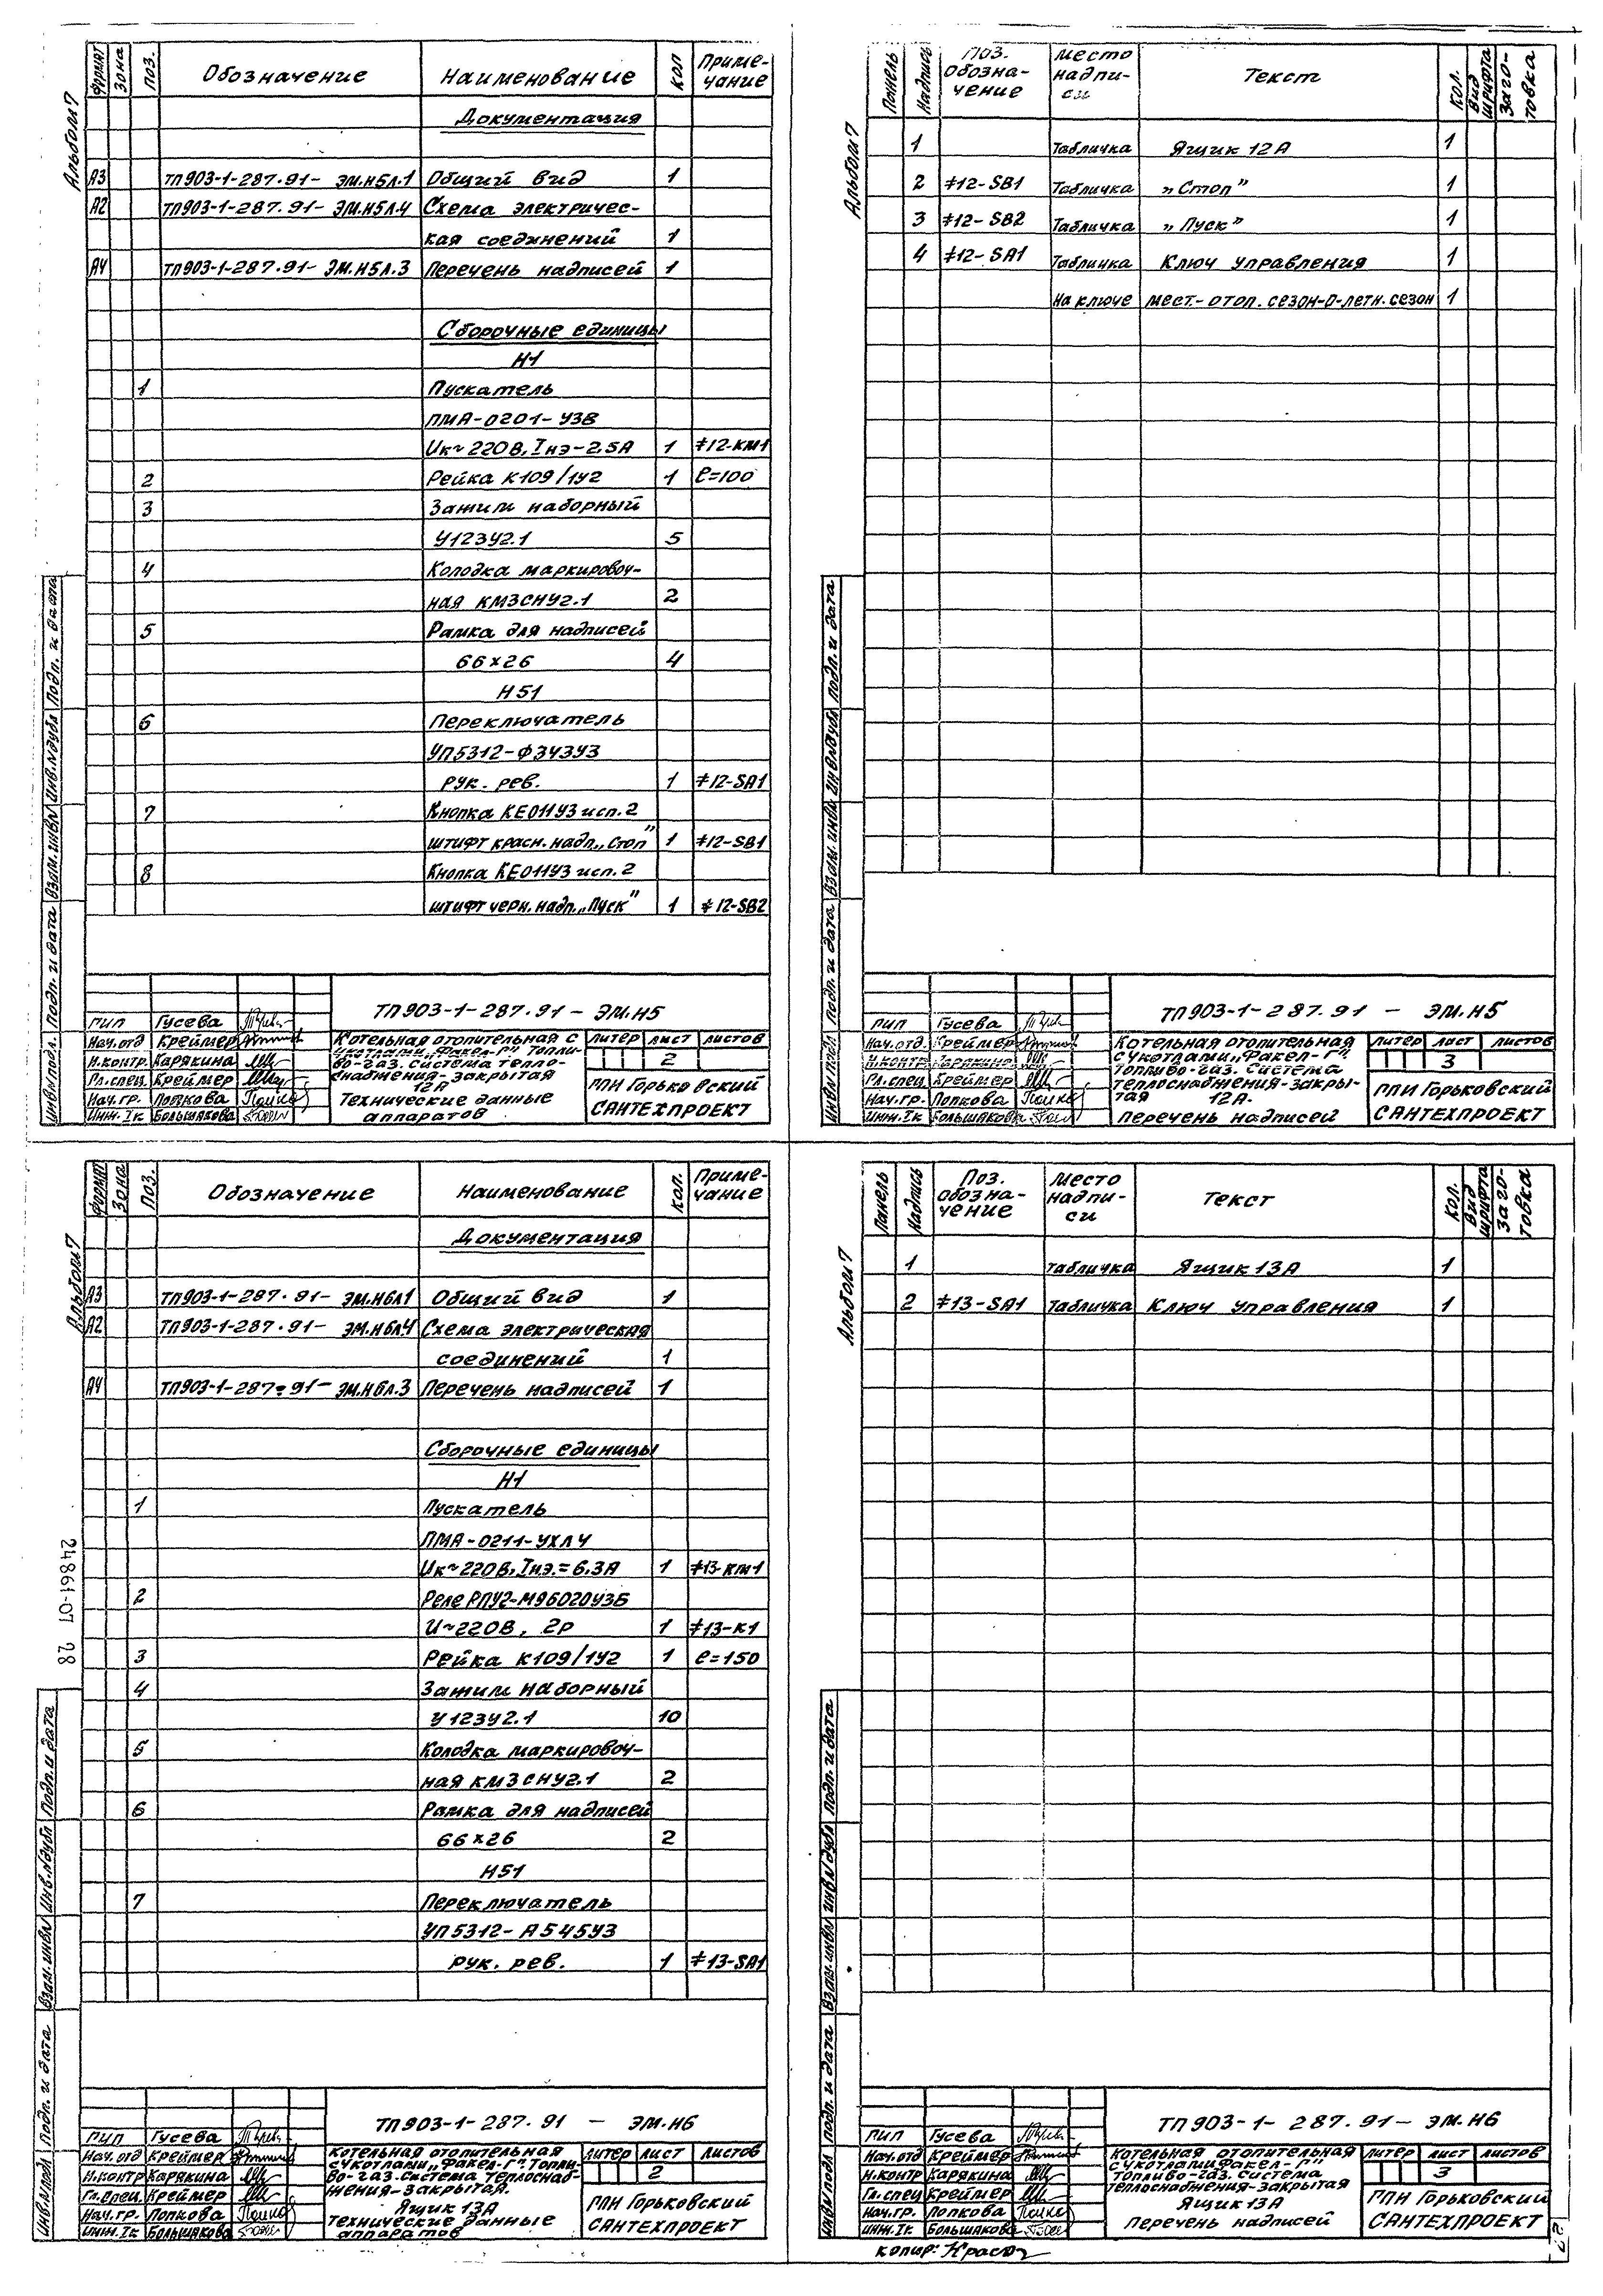 Альбом 7
Формат Зона Поз. Обозначение Наименование Кол Приме-
чание
Документация
А3 ТП903-1-287.91- ЭМ.Н5Л.1 Общий вид 1
А2 ТП903-1-287.91- ЭМ.Н5Л.4 Схема электричес-
кая соединений 1
А4 ТП903-1-287.91- ЭМ.Н5Л.3 Перечень надписей 1
Сборочные единицы
Н1
1 Пускатель
ПМА-0201-УЗВ
Uк~220В, Iнэ-2.5А 1 #12-КМ1
2 Рейка К109/1У2 1 ℓ=100
3 Зажим наборный
У123У2.1 5
4 Колодка маркировоч-
ная КМ3СНУ2.1 2
5 Рамка для надписей
66×26 4
Н51
6 Переключатель
УП5312-Ф343У3
рук. рев. 1 #12-SA1
7 Кнопка КЕ011У3 исп.2
штифт красн. надп. „Стоп” 1 #12-SB1
8 Кнопка КЕ011У3 исп.2
штифт черн. надп. „Пуск” 1 #12-SB2
Инв.№подл. Подп. и дата Взам.инв.№ Инв.№дубл Подп. и дата
ТП903-1-287.91 - ЭМ.Н5
ГИП Гусева
Нач.отд Креймер
Н.контр. Карякина
Гл.спец. Креймер
Нач.гр. Попкова
Инж.Iк Большакова
Котельная отопительная с
4 котлами „Факел-Г”. Топли-
во-газ. Система тепло-
снабжения-закрытая
12А
Технические данные
аппаратов
Литер Лист Листов
2
ГПИ Горьковский
САНТЕХПРОЕКТ
Альбом 7
Панель Надпись Поз.
обозна-
чение Место
надпи-
си Текст Кол. Вид
шрифта Заго-
товка
1 Табличка Ящик 12А 1
2 #12-SB1 Табличка „Стоп” 1
3 #12-SB2 Табличка „Пуск” 1
4 #12-SA1 Табличка Ключ управления 1
На ключе мест.-отоп. сезон-О-летн. сезон 1
Инв.№подл Подп. и дата Взам. инв.№ Инв.№дубл Подп. и дата
ТП903-1-287.91 - ЭМ.Н5
ГИП Гусева
Нач.отд. Креймер
Н.контр. Карякина
Гл.спец Креймер
Нач.гр. Попкова
Инж.Iк Большакова
Котельная отопительная
с 4 котлами „Факел-Г”.
Топливо-газ. Система
теплоснабжения-закры-
тая 12А.
Перечень надписей
Литер Лист Листов
3
ГПИ Горьковский
САНТЕХПРОЕКТ
Альбом 7
Формат Зона Поз. Обозначение Наименование Кол. Приме-
чание
Документация
А3 ТП903-1-287.91- ЭМ.Н6Л1 Общий вид 1
А2 ТП903-1-287.91- ЭМ.Н6Л4 Схема электрическая
соединений 1
А4 ТП903-1-287.91- ЭМ.Н6Л.3 Перечень надписей 1
Сборочные единицы
Н1
1 Пускатель
ПМА-0211-УХЛ4
Uк~220В, Iнэ.=6.3А 1 #13-КМ1
2 Реле РПУ2-М96020У3Б
U~220В, 2р 1 #13-К1
3 Рейка К109/1У2 1 ℓ=150
4 Зажим наборный
У123У2.1 10
5 Колодка маркировоч-
ная КМ3СНУ2.1 2
6 Рамка для надписей
66×26 2
Н51
7 Переключатель
УП5312-А545У3
рук. рев. 1 #13-SA1
24861-07 28
Инв.№подл Подп. и дата Взам.инв№ Инв.№дубл Подп.и дата
ТП903-1-287.91 - ЭМ.Н6
ГИП Гусева
Нач.отд Креймер
Н.контр Карякина
Гл.спец. Креймер
Нач.гр. Попкова
Инж.Iк Большакова
Котельная отопительная
с 4 котлами „Факел-Г”. Топли-
во-газ. Система теплоснаб-
жения-закрытая.
Ящик 13А
Технические данные
аппаратов
Литер Лист Листов
2
ГПИ Горьковский
САНТЕХПРОЕКТ
Альбом 7
Панель Надпись Поз.
обозна-
чение Место
надпи-
си Текст Кол. Вид
шрифта Заго-
товка
1 Табличка Ящик 13А 1
2 #13-SA1 Табличка Ключ управления 1
Инв.№подл Подп. и дата Взам. инв№ Инв№дубл Подп. и дата
ТП903-1-287.91- ЭМ.Н6
ГИП Гусева
Нач.отд Креймер
Н.контр Карякина
Гл.спец Креймер
Нач.гр. Попкова
Инж.Iк. Большакова
Котельная отопительная
с 4 котлами „Факел-Г”
Топливо-газ. Система
теплоснабжения-закрытая
Ящик 13А
Перечень надписей
Литер Лист Листов
3
ГПИ Горьковский
САНТЕХПРОЕКТ
Копир: